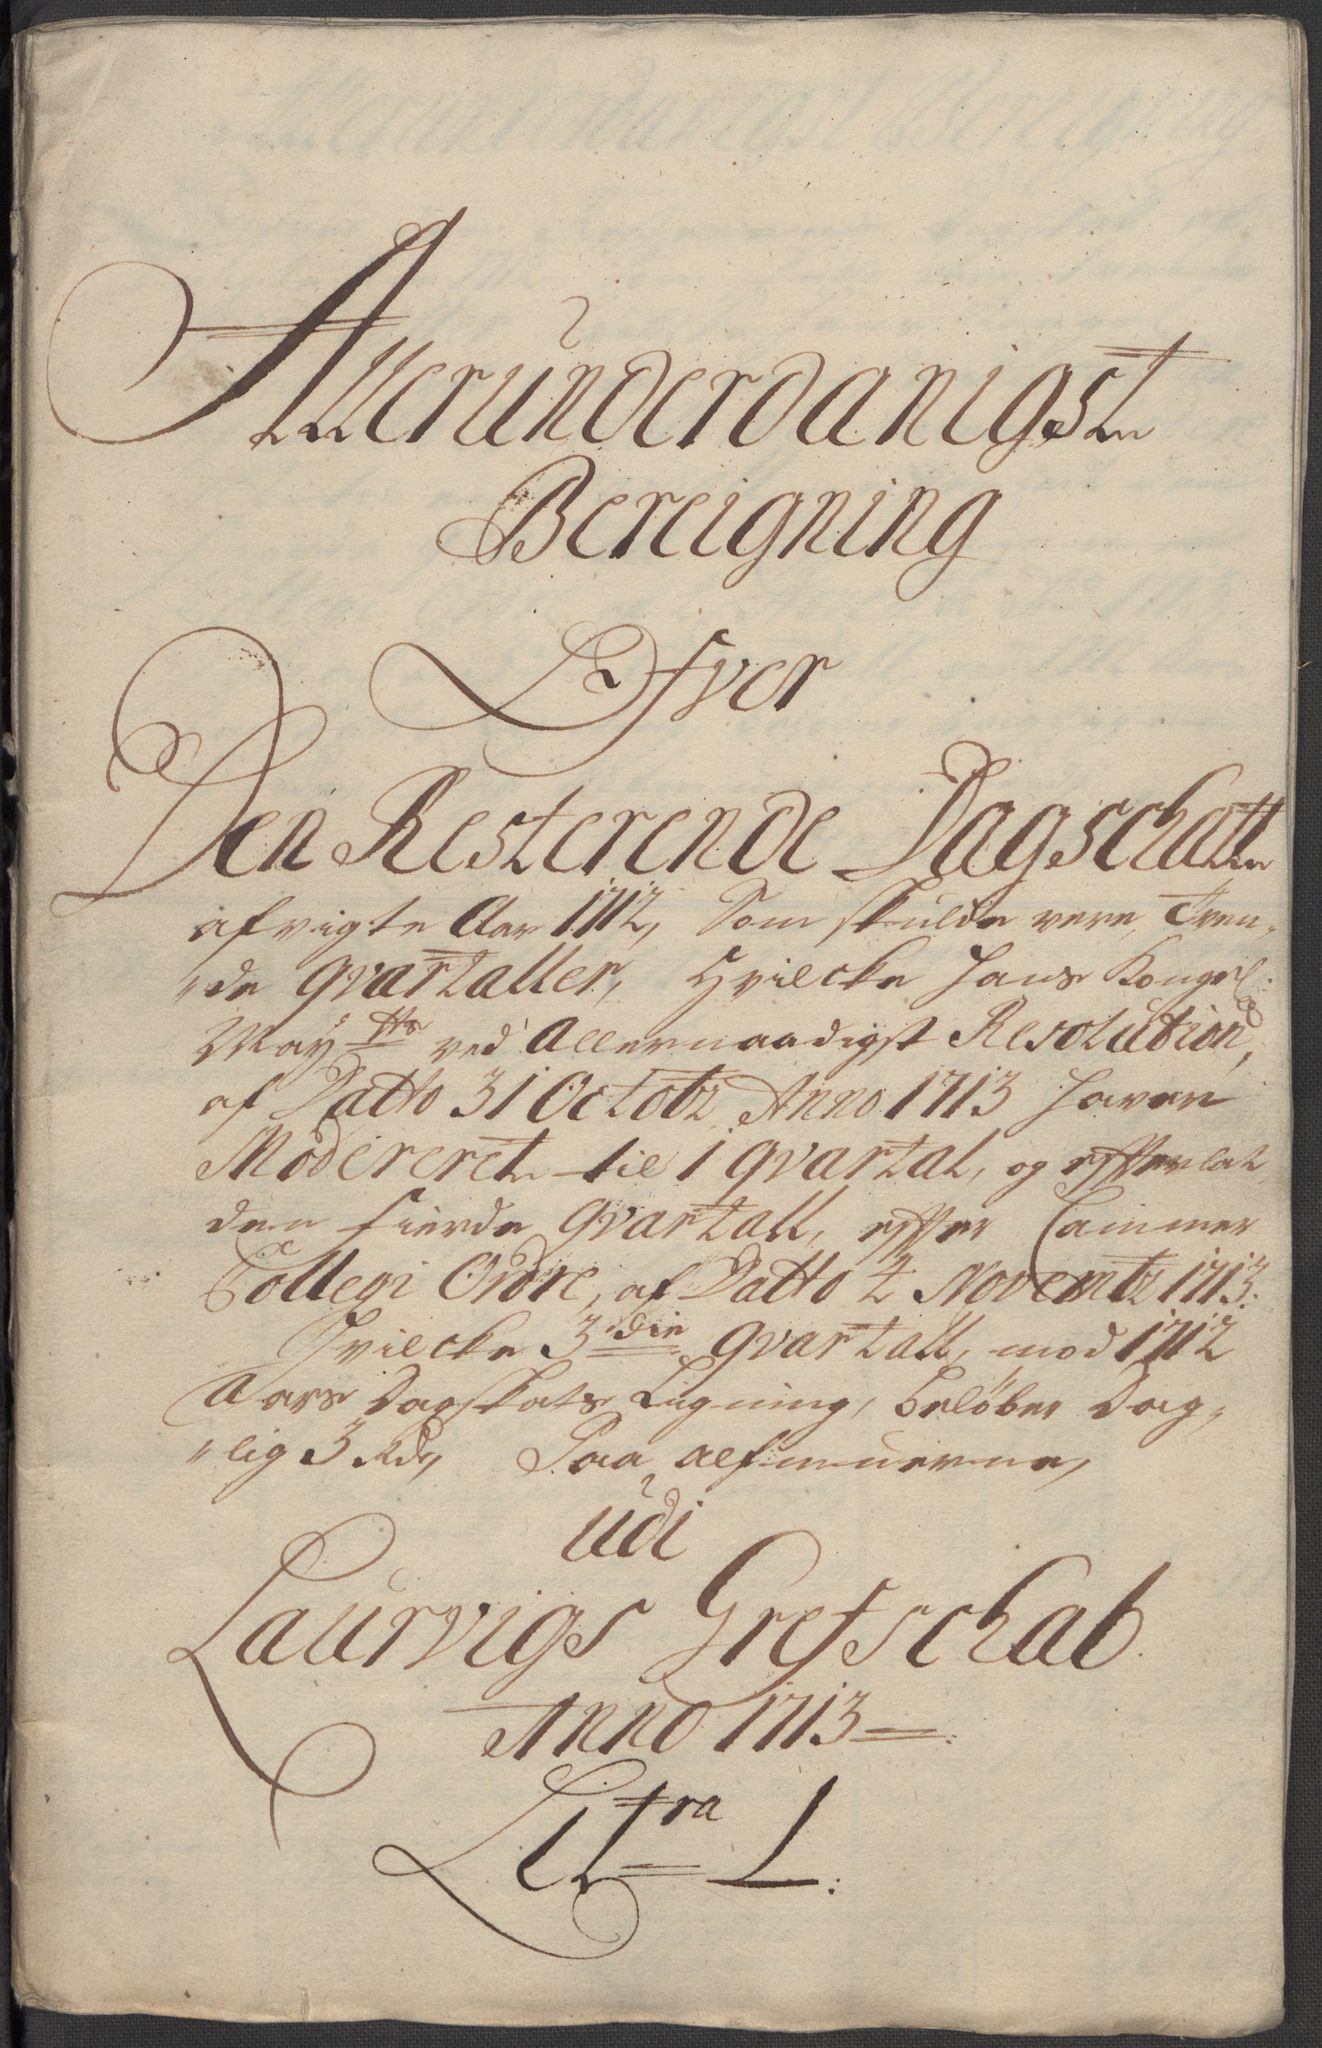 Allerúnderdanigst
Bereigning
Ofver
Den Resterende Dagschatt
afvigte Aar 1712, Som skulde vere, Tren„
„de qvartaller, Hvilcke Hans Kongel:
May^tts ved Allernaadigst Resolution,
af Datto 31 Octobr Anno 1713 haver
Modereret til 1 qvartal, og efterlat
den fierde qvartall, efter Cammer
Collegi Ordre, af Datto 2 Novembr 1713:
Hvilcke 3^die qvartall, mod 1712
Aars Dagskats Ligning, beløber Dag„
„lig 3 Rd, Paa alfmuerne,
udi
Laurvigs Grefschab
Anno 1713 =:
Lit^ra L: